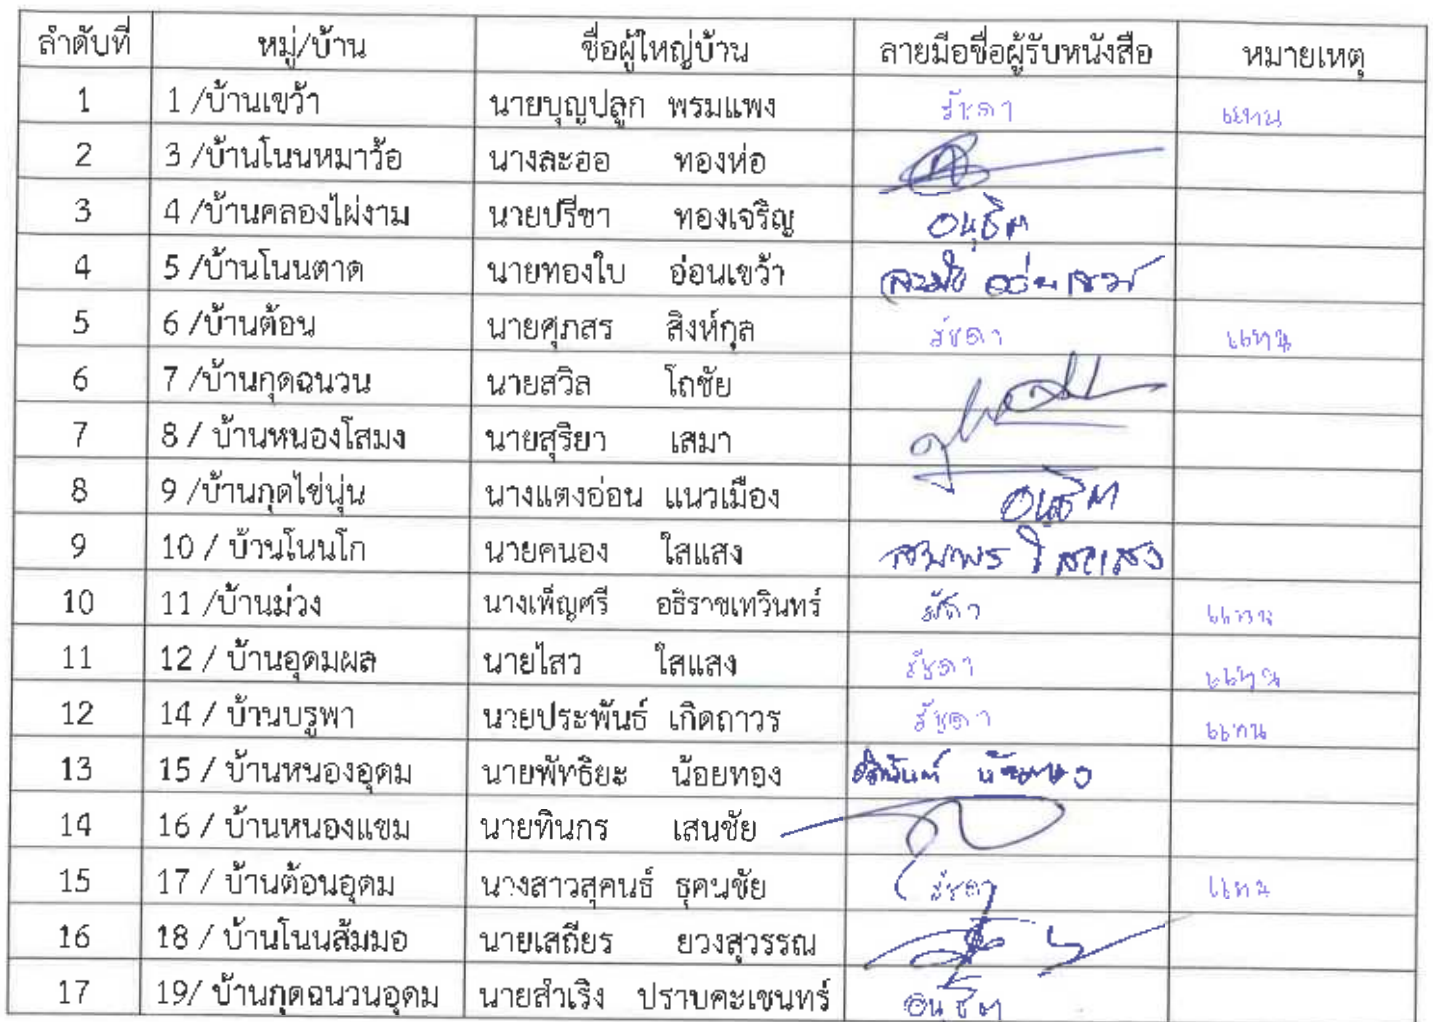 ลำดับที่ หมู่/บ้าน ชื่อผู้ใหญ่บ้าน ลายมือชื่อผู้รับหนังสือ หมายเหตุ
1 1 /บ้านเขว้า นายบุญปลูก พรมแพง รัชดา แทน
2 3 /บ้านโนนหมาว้อ นางละออ ทองห่อ
3 4 /บ้านคลองไผ่งาม นายปรีชา ทองเจริญ อนุชิต
4 5 /บ้านโนนตาด นายทองใบ อ่อนเขว้า
5 6 /บ้านต้อน นายศุภสร สิงห์กุล รัชดา แทน
6 7 /บ้านกุดฉนวน นายสวิล โถชัย
7 8 / บ้านหนองโสมง นายสุริยา เสมา
8 9 /บ้านกุดไข่นุ่น นางแตงอ่อน แนวเมือง อนุชิต
9 10 / บ้านโนนโก นายคนอง ใสแสง สมพร ใสแสง
10 11 /บ้านม่วง นางเพ็ญศรี อธิราชเทวินทร์ รัชดา แทน
11 12 / บ้านอุดมผล นายไสว ใสแสง รัชดา แทน
12 14 / บ้านบรูพา นายประพันธ์ เกิดถาวร รัชดา แทน
13 15 / บ้านหนองอุดม นายพัทธิยะ น้อยทอง น้อยทอง
14 16 / บ้านหนองแขม นายทินกร เสนชัย
15 17 / บ้านต้อนอุดม นางสาวสุคนธ์ ธุคนชัย รัชดา แทน
16 18 / บ้านโนนส้มมอ นายเสถียร ยวงสุวรรณ
17 19/ บ้านกุดฉนวนอุดม นายสำเริง ปราบคะเชนทร์ อนุชิต